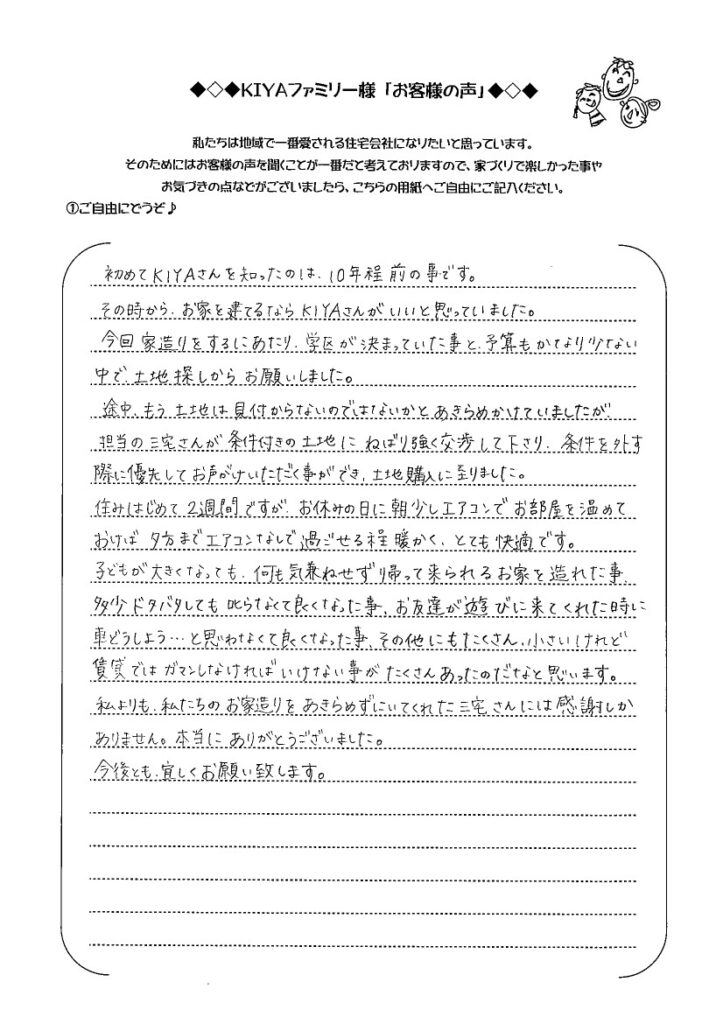 ◆◇◆KIYAファミリー様「お客様の声」◆◇◆
私たちは地域で一番愛される住宅会社になりたいと思っています。
そのためにはお客様の声を聞くことが一番だと考えておりますので、家づくりで楽しかった事や
お気づきの点などがございましたら、こちらの用紙へご自由にご記入ください。
①ご自由にどうぞ♪
初めてKIYAさんを知ったのは、10年程前の事です。
その時から、お家を建てるならKIYAさんがいいと思っていました。
今回家造りをするにあたり、学区が決まっていた事と、予算もかなり少ない
中で、土地探しからお願いしました。
途中、もう土地は見付からないのではないかとあきらめかけていましたが、
担当の三宅さんが条件付きの土地にねばり強く交渉して下さり、条件を外す
際に優先してお声がけいただく事ができ、土地購入に至りました。
住みはじめて2週間ですが、お休みの日に朝少しエアコンでお部屋を温めて
おけば夕方までエアコンなしで過ごせる程暖かく、とても快適です。
子どもが大きくなっても、何も気兼ねせず帰って来られるお家を造れた事、
多少ドタバタしても叱らなくて良くなった事、お友達が遊びに来てくれた時に
車どうしよう…と思わなくて良くなった事、その他にもたくさん、小さいけれど
賃貸ではガマンしなければいけない事がたくさんあったのだなと思います。
私よりも、私たちのお家造りをあきらめずにいてくれた三宅さんには感謝しか
ありません。本当にありがとうございました。
今後とも、宜しくお願い致します。